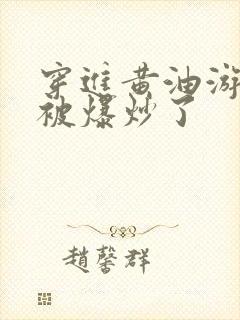 穿進黃油游
被爆炒了
趙馨群